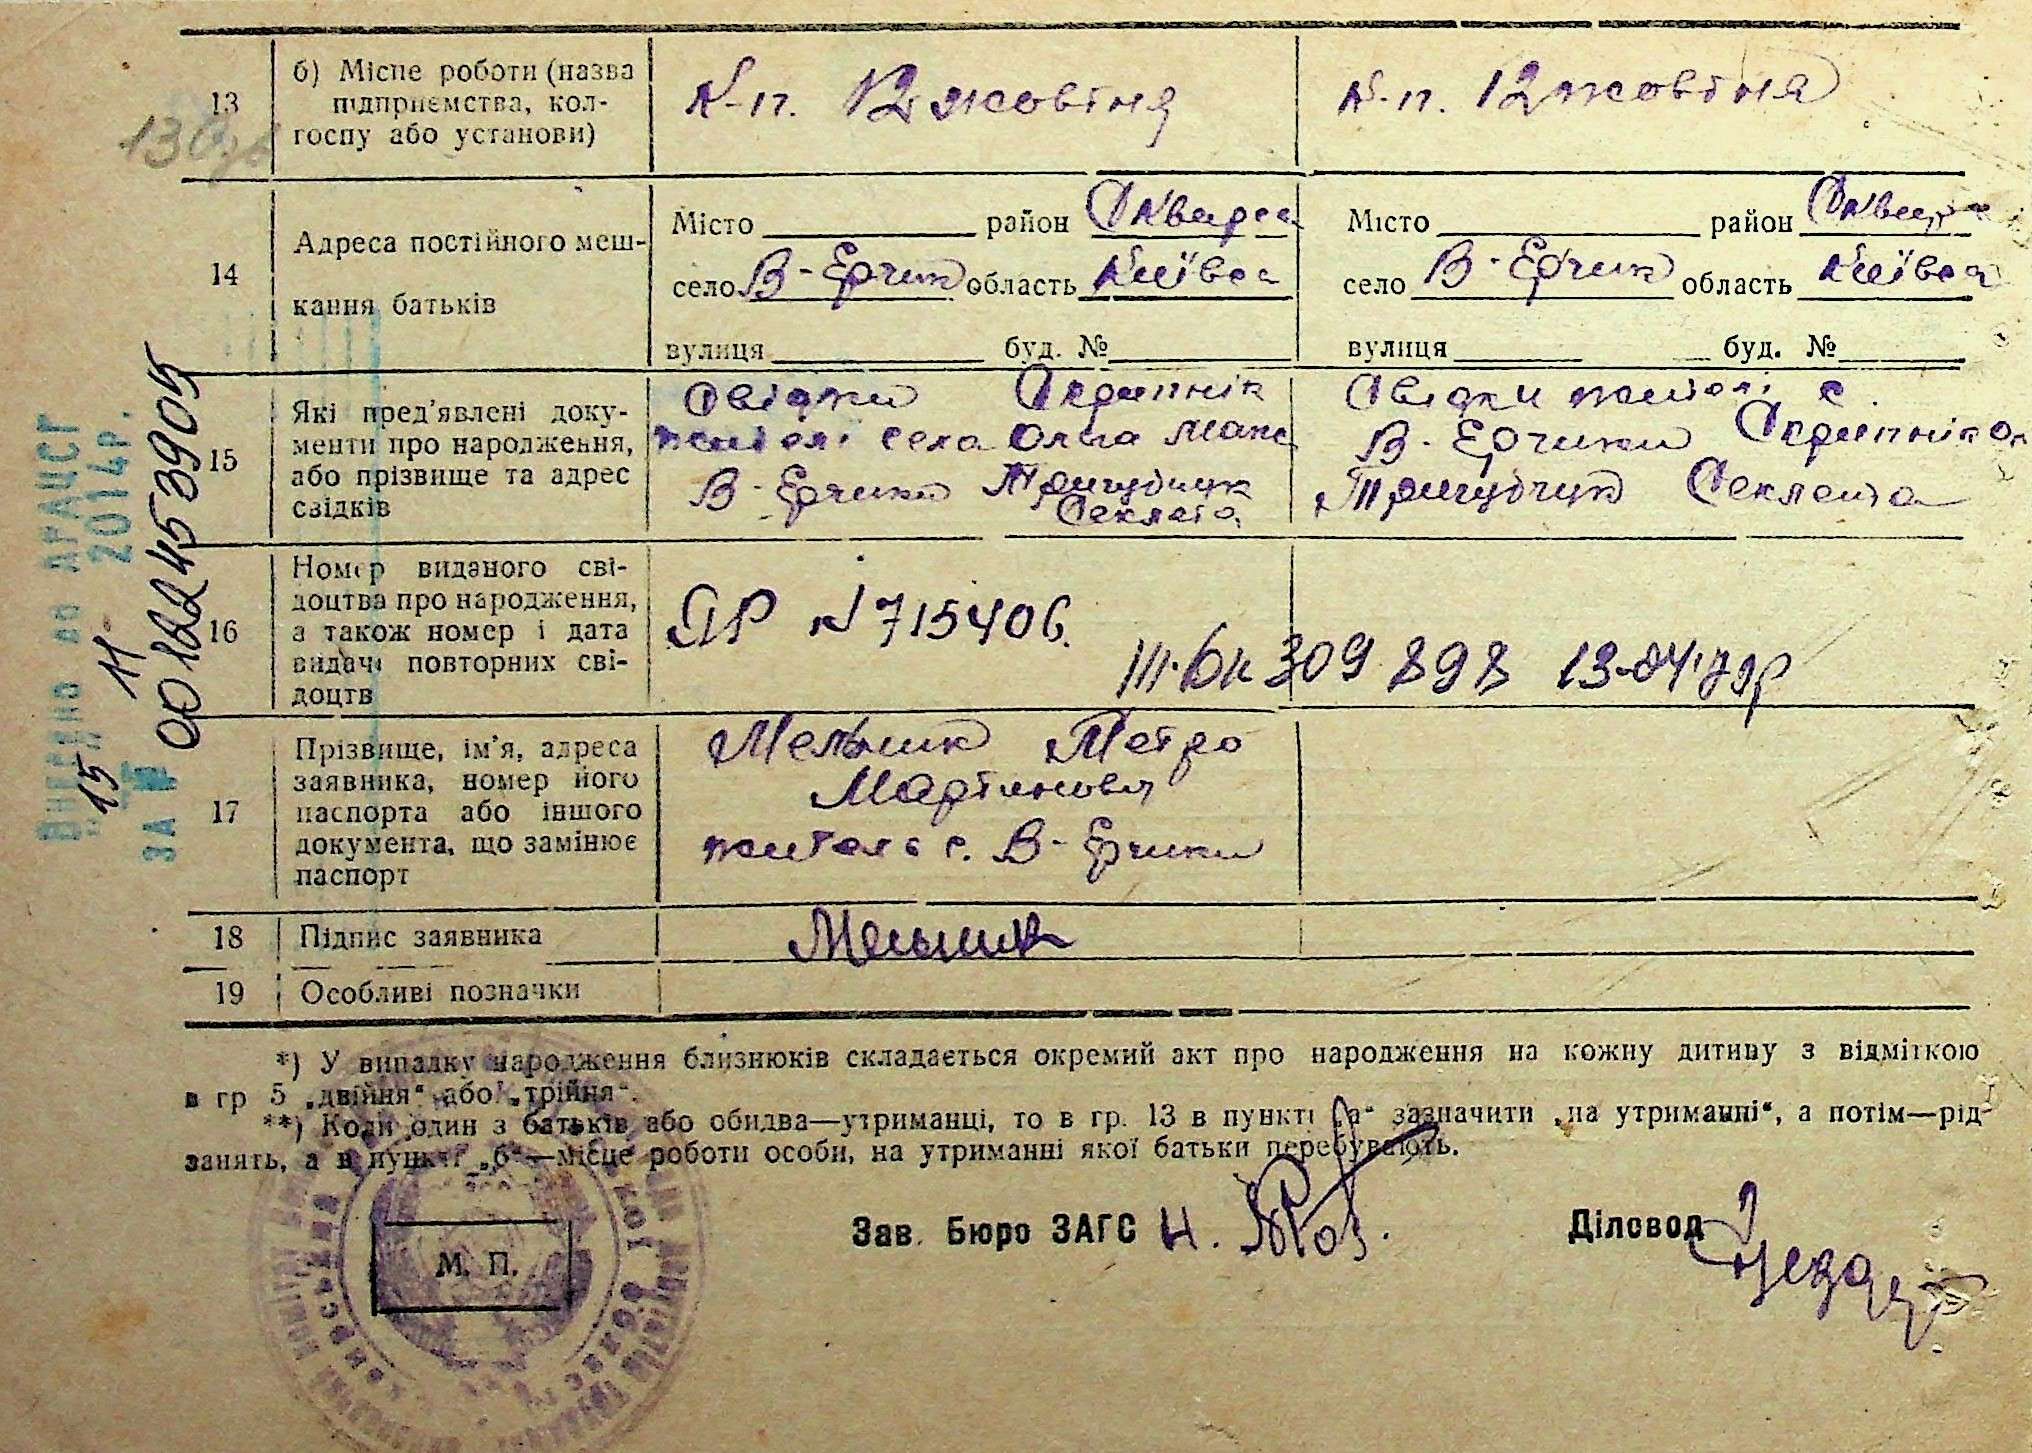 13 б) Місце роботи (назва підприємства, колгоспу або установи) К-п. 12 жовтня К-п. 12 жовтня
14 Адреса постійного мешкання батьків
Місто район Сквира Місто район Сквира
село В-Єрчик область Київса село В-Єрчик область Київса
вулиця буд. № вулиця буд. №
15 Які пред'явлені документи про народження, або прізвище та адрес свідків
Свідки Скрипнік Свідки жителі с.
жителі села Ольга Макс В-Єрчики Скрипнік Ол
В-Єрчики Тригубчук Тригубчук Секлета
Секлета
16 Номер виданого свідоцтва про народження, а також номер і дата видачі повторних свідоцтв
ЯР N 715406.
III-БК 309 898 13-04-79р
17 Прізвище, ім'я, адреса заявника, номер його паспорта або іншого документа, що замінює паспорт
Мельник Петро
Мартинович
житель с. В-Єрчики
18 Підпис заявника Мельник
19 Особливі позначки
*) У випадку народження близнюків складається окремий акт про народження на кожну дитину з відміткою
в гр 5 „двійня“ або „трійня“.
**) Коли один з батьків або обидва—утриманці, то в гр. 13 в пункті „а“ зазначити „на утриманні“, а потім—рід
занять, а в пункті „б“—місце роботи особи, на утриманні якої батьки перебувають.
Зав. Бюро ЗАГС Діловод
М. П.
Внесено до ДРАЦСГ
15 11 2014р.
ЗА № 00122453905